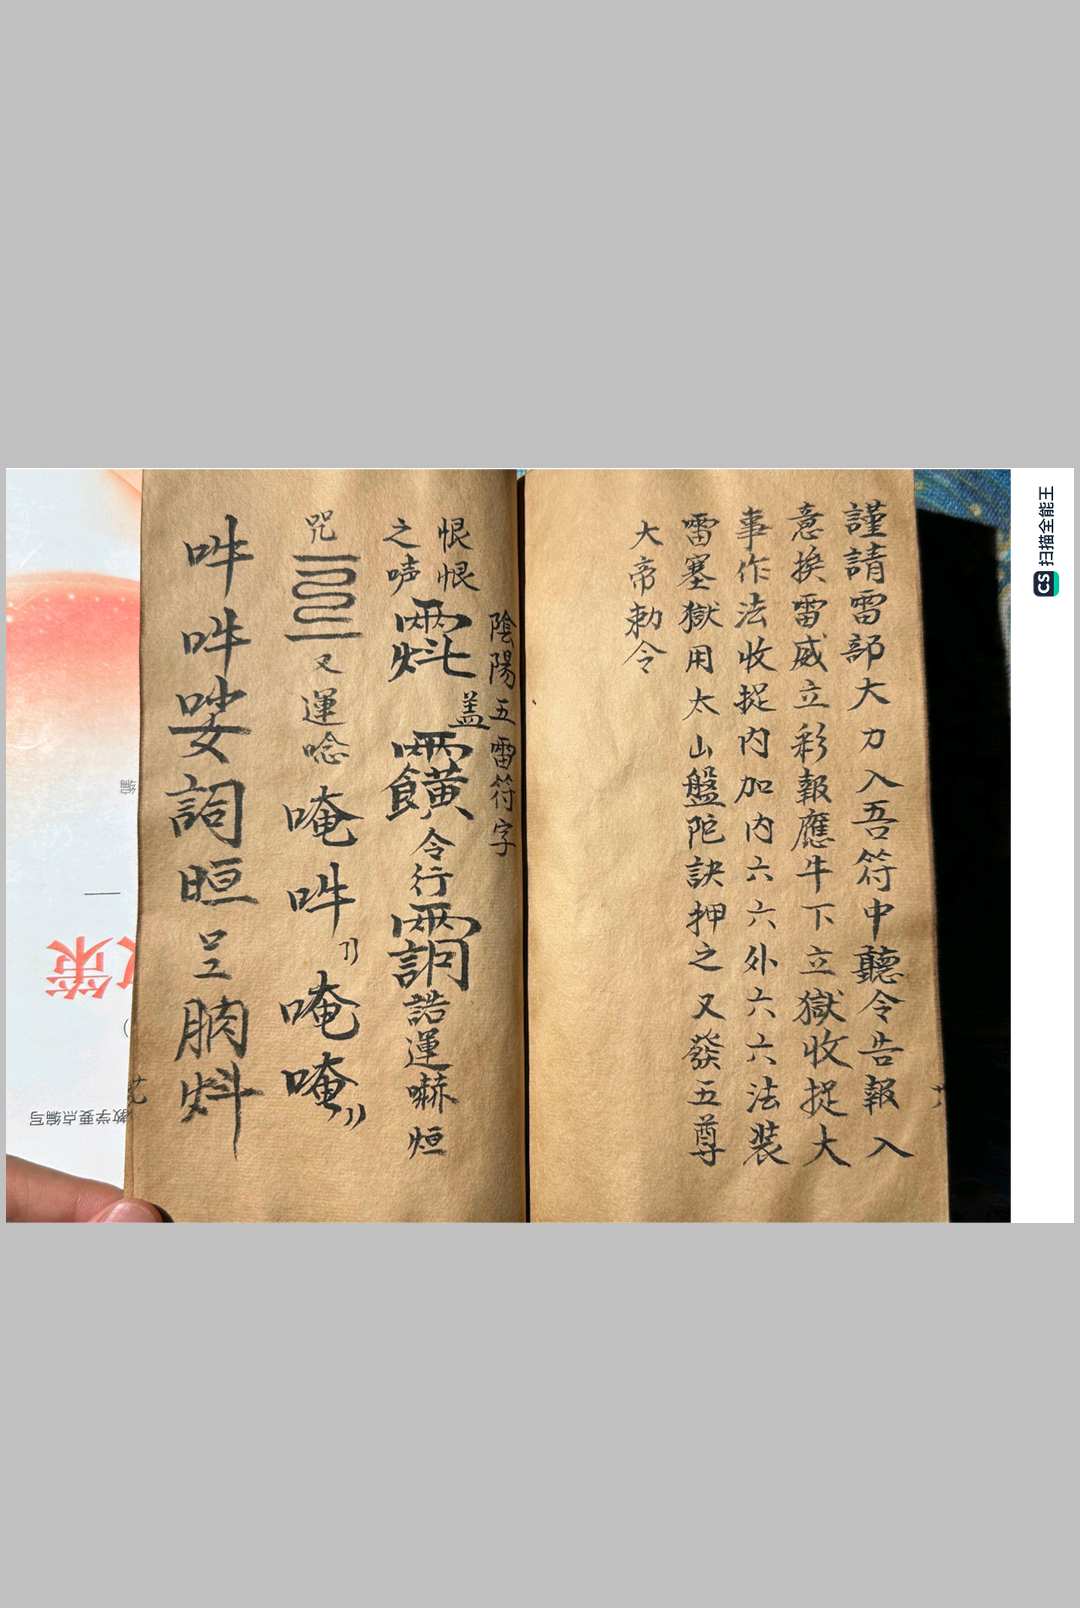 謹請雷部大力入吾符中聽令告報入
意換雷威立彩報應牛下立獄收捉大
事作法收捉内加内六六外六六法裝
雷塞獄用太山盤陀訣押之又發五尊
大帝勅令
陰陽五雷符字
恨恨蓋
之唪令行誥運嚇烜
咒又運唸唵吽唵唵
吽吽詞
CS 扫描全能王
教学要点编写
编
策